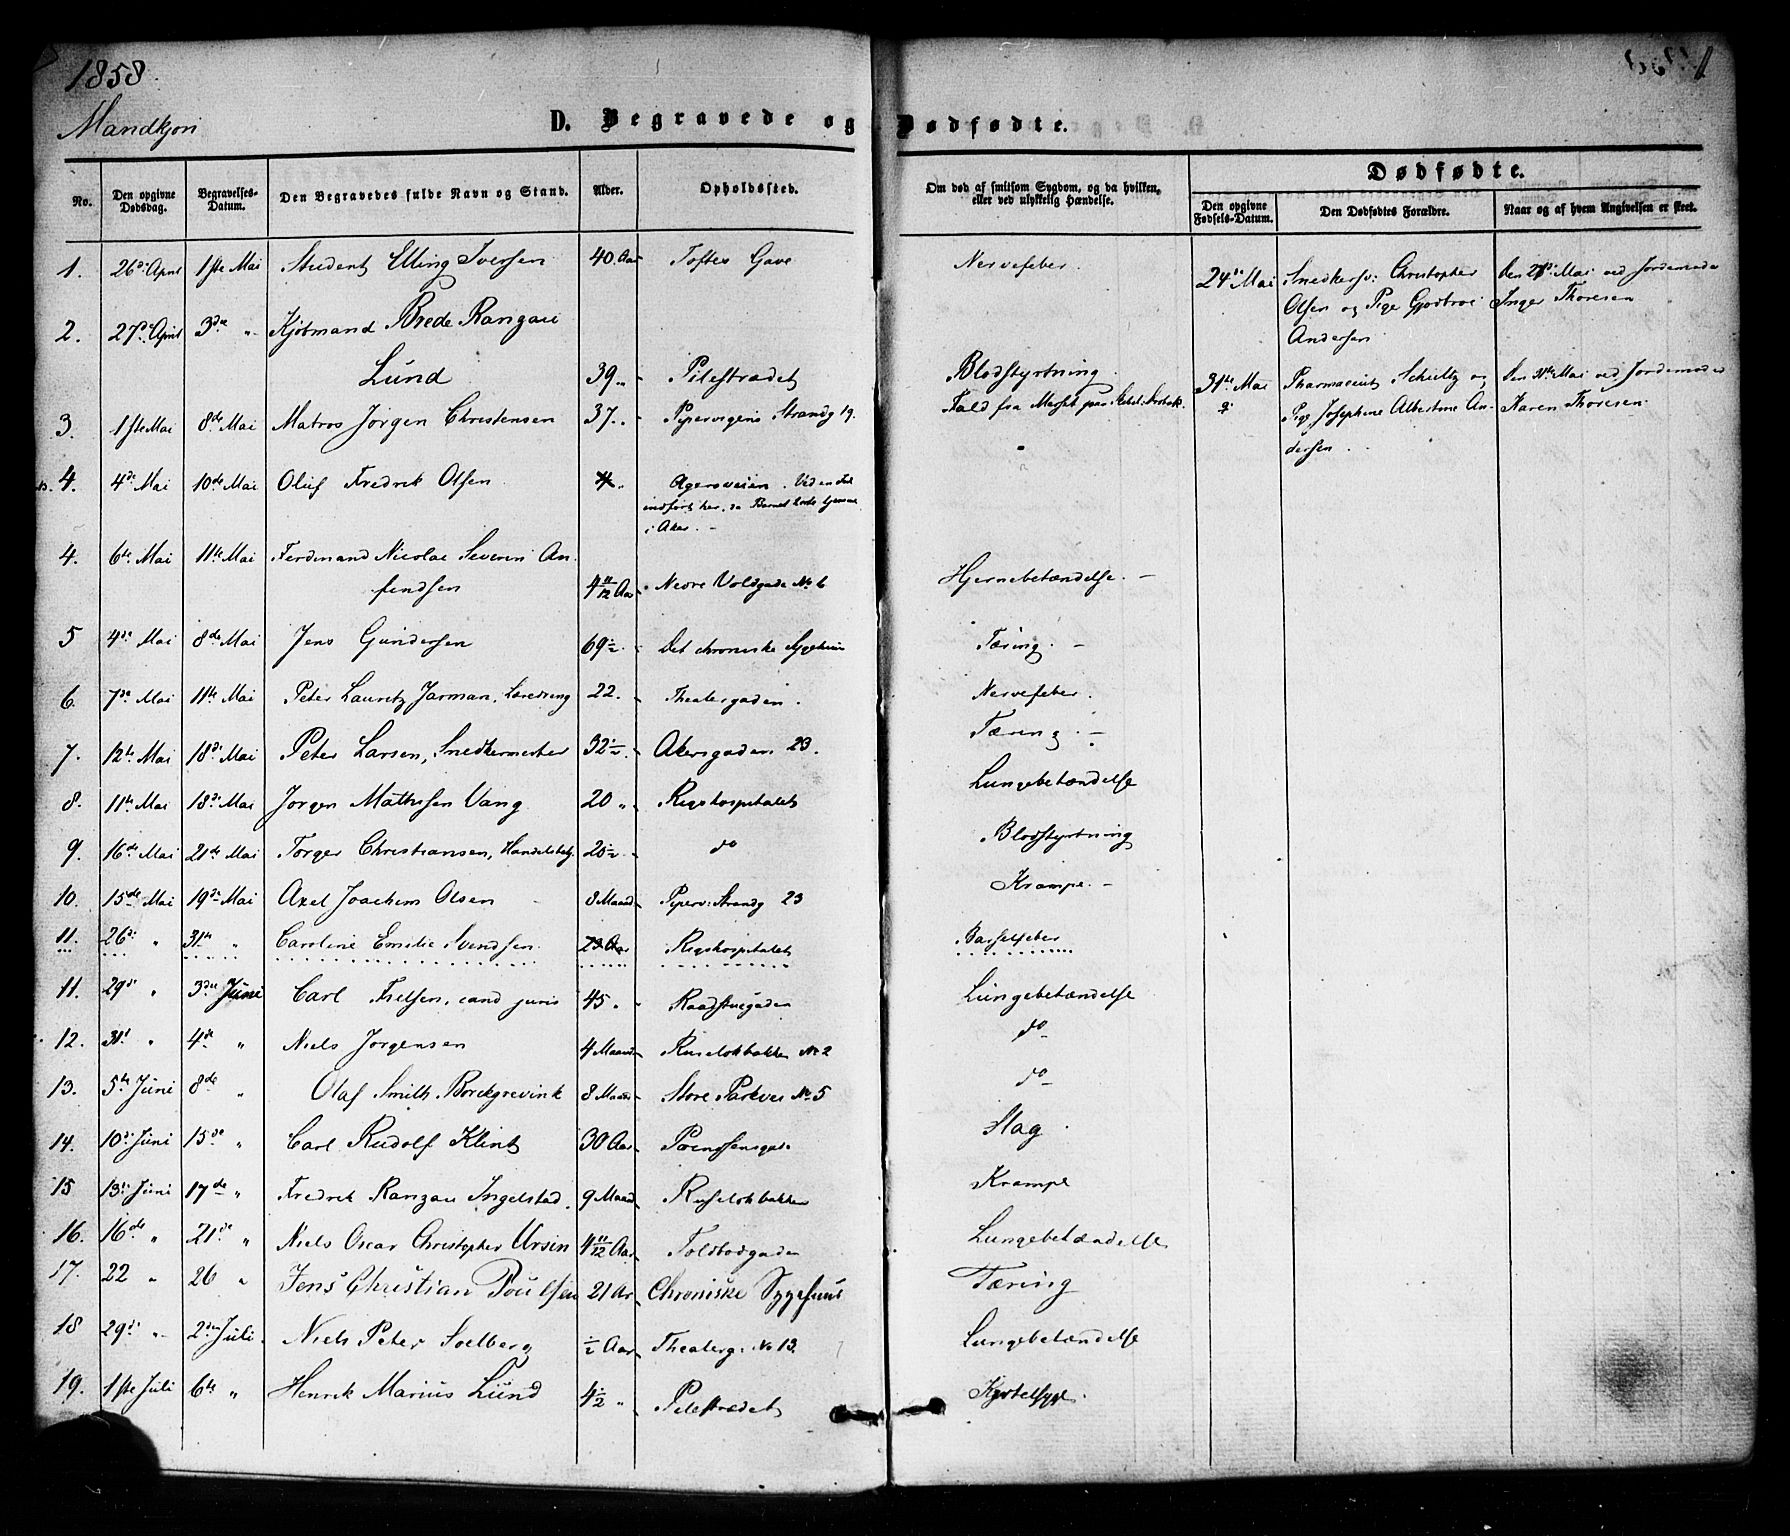 1858
Mandkjøn
D. Begravede og Dødfødte.
No. | Den opgivne Dødsdag. | Begravelses-Datum. | Den Begravedes fulde Navn og Stand. | Alder. | Opholdssted. | Om død af smitsom Sygdom, og da hvilken, eller ved ulykkelig Hændelse.
Dødfødte.
Den opgivne Fødsels-Datum. | Den Dødfødtes Forældre. | Naar og af hvem Angivelsen er skeet.
1. 26de April 1ste Mai Student Elling Iversen 40 Aar Toftes Gave Nervefeber.
24de Mai Snedkersv: Christopher Olsen og Pige Andersen
Inger Thoresen
2. 27de April 3die " Kjøbmand Brede Ranzau Lund 39 " Pilestrædet Blodstyrtning.
31te Mai Pharmaceut Schultz og Pige Josephine Albertine Andersen
Den 31te Mai ved Jordemoder Karen Thoresen
3. 1ste Mai 8de Mai Matros Jørgen Christensen 37 " Pipervigens Strandg 19. Fald fra
4. 4de Mai 10de Mai Oluf Fredrik Olsen Agersveien. Ved en Feil
indført her, da Barnet
i Aker.
4. 6te Mai 11te Mai Ferdinand Nicolai Severin An-
findsen 4 11/12 Aar Nedre Voldgade No 6 Hjernebetændelse.
5 4de Mai 8de Mai Jens Gundersen 69 1/2 Det chroniske Sygehuus Tæring.
6. 7de Mai 11te Mai Peter Lauritz Jarman, Læredreng 22. Theatergaden. Nervefeber.
7. 12te Mai 18de Mai Peter Larsen, Snedkermester 32 1/2 Akersgaden 23. Tæring.
8. 11te Mai 18de Mai Jørgen Mathisen Vang 20 " Rigshospitalet Lungebetændelse
9. 16de Mai 21de Mai Torger Christiansen, Handelsbetj. 20 1/2 do Blodstyrtning
10. 15de Mai 19de Mai Axel Joachim Olsen 8 Maand Piperv: Strandg 23 Krampe.
11. 26de " 31te " Caroline Emilie Svendsen 23 Aar Rigshospitalet Barselfeber
11. 29de " 3die Juni Carl Frelsen, cand juris 45 " Raadstuegaden Lungebetændelse
12. 31te " 4de " Niels Jørgensen 4 Maaned Ruseløkbakken No 2 do
13. 5te Juni 8de " Olaf Smith Borchgrevink 8 Maan Store Parkvei No 5 do
14. 10de Juni 15de " Carl Rudolf Klint 30 Aar Slag.
15 13de Juni 17de " Fredrik Ranzau Ingelstad. 9 Maaned Ruseløkbakken Krampe
16. 16de " 21de " Niels Oscar Christopher Ursin 4 11/12 Aar Toldbodgaden Lungebetændelse
17. 22 " 26 " Jens Christian Poulsen 21 Ar Chroniske Sygehuus Tæring
18 29de " 2den Juli Niels Peter Soelberg 1/2 Aar Theaterg: No 13. Lungebetændelse
19. 1ste Juli 6te " Henrik Marius Lund 4 1/2 " Pilestrædet Kjertelsyge.